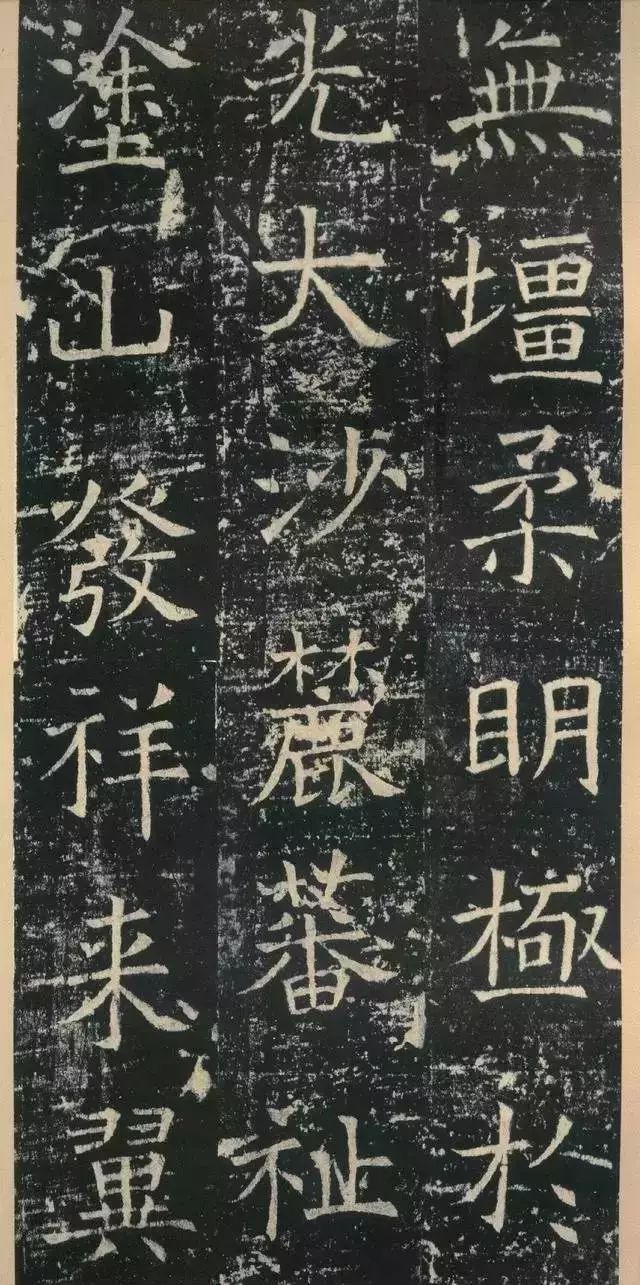 無壃柔明極於
光大沙麓蕃祉
塗山發祥来翼